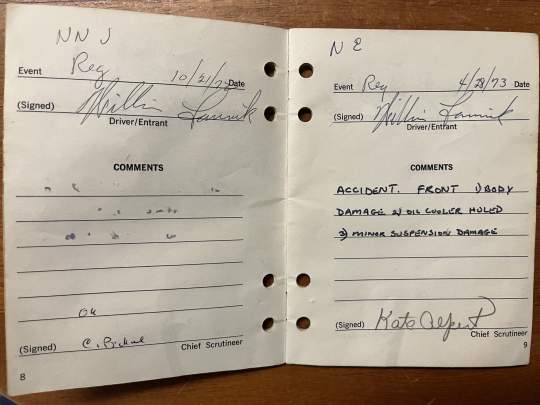 NNJ
Event Reg 10/21/73 Date
(Signed)
Driver/Entrant
COMMENTS
OK
(Signed)
Chief Scrutineer
8
NE
Event Reg 4/28/73 Date
(Signed)
Driver/Entrant
COMMENTS
ACCIDENT. FRONT 1) BODY
DAMAGE 2) OIL COOLER HOLED
3) MINOR SUSPENSION DAMAGE
(Signed) Kate Alpert
Chief Scrutineer
9